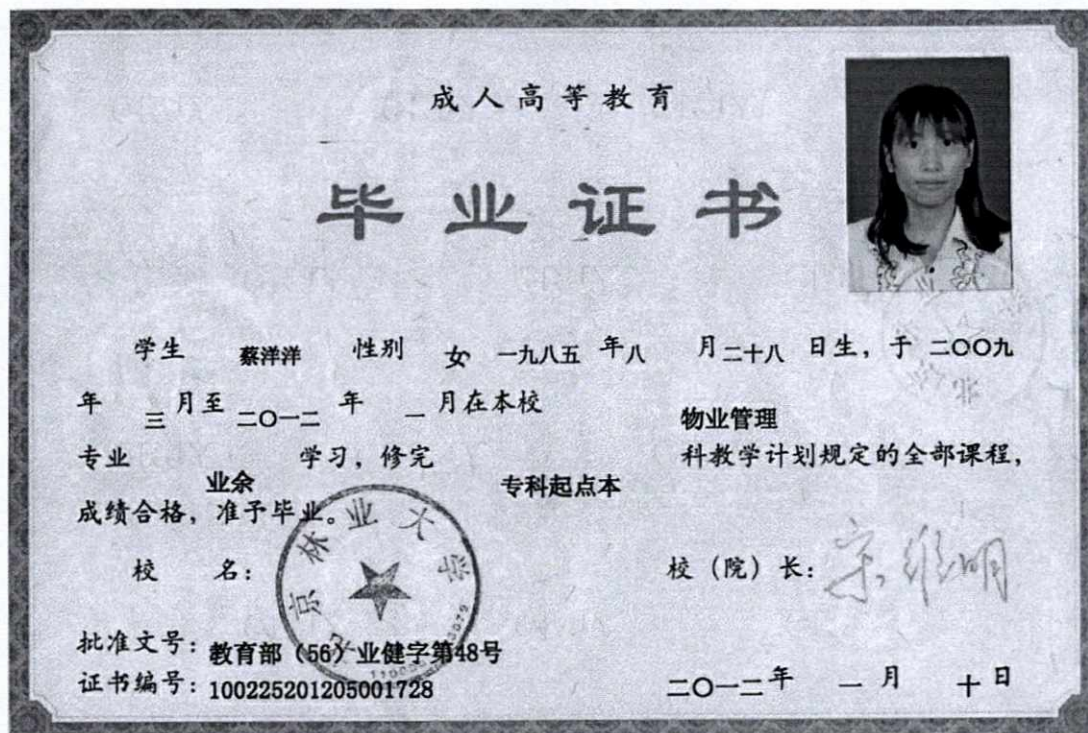 成人高等教育
毕业证书
学生 蔡洋洋 性别 女 一九八五 年八 月二十八 日生，于 二〇〇九
年 三 月至 二〇一二 年 一 月在本校 物业管理
专业 业余 学习，修完 专科起点本 科教学计划规定的全部课程，
成绩合格，准予毕业。
北京林业大学
校 名： 校（院）长： 宋维明
批准文号：教育部（56）业健字第48号
证书编号：100225201205001728 二〇一二年 一 月 十日